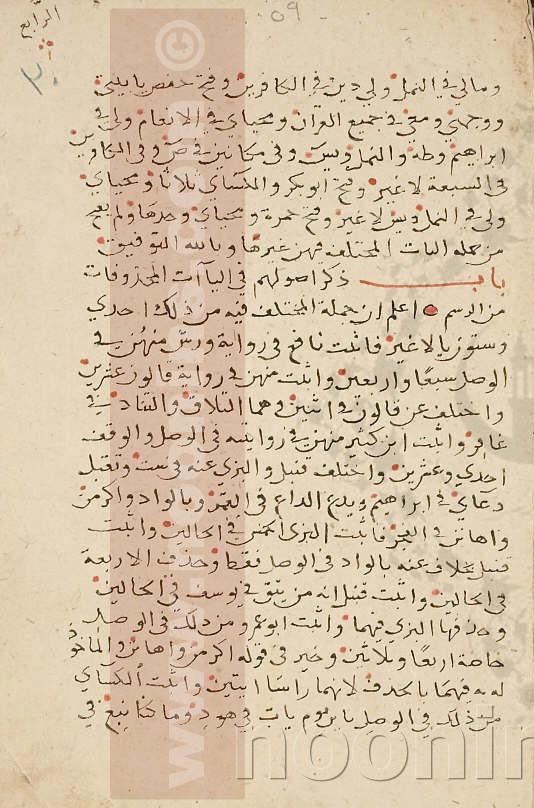 الرابع
٥٩
ومالي في النمل ولي دين في الكافرين وفتح حفص يا بيتي
ووجهي ومعي في جميع القرآن ومحياي في الانعام ولي في
ابراهيم وطه والنمل ويس وفي مكانين في ص وفي الكافرين
في السبعة لا غير وفتح ابو بكر والكسائي ثلاثا ومحياي
ولي في النمل ويس لا غير وفتح حمزة ومحياي وحدها ولم يفتح
من جملة اليات المختلف فيهن غيرها وبالله التوفيق
باب ذكر اصولهم في الياآت المحذوفات
من الرسم اعلم ان جملة المختلف فيه من ذلك احدي
وستون يا لا غير فاثبت نافع في رواية ورش منهن في
الوصل سبعا واربعين واثبت منهن في رواية قالون عشرين
واختلف عن قالون في اثنين وهما التلاق والتناد في
غافر واثبت ابن كثير منهن في روايتيه في الوصل والوقف
احدي وعشرين واختلف قنبل والبزي عنه في ست وتقبل
دعاي في ابراهيم ويدع الداع في القمر وبالواد واكرمن
واهانن في الفجر فاثبت البزي الخمس في الحالين واثبت
قنبل بخلاف عنه بالواد في الوصل فقط وحذف الاربعة
في الحالين واثبت قنبل انه من يتق في يوسف في الحالين
وحذفها البزي فيهما واثبت ابو عمرو من ذلك في الوصل
خاصة اربعا وثلاثين وخير في قوله اكرمن واهانن والماخوذ
له به فيهما بالحذف لانهما راسا ايتين واثبت الكسائي
من ذلك في الوصل يا ين يوم يات في هود وما كنا نبغ في
www.noor
noonin